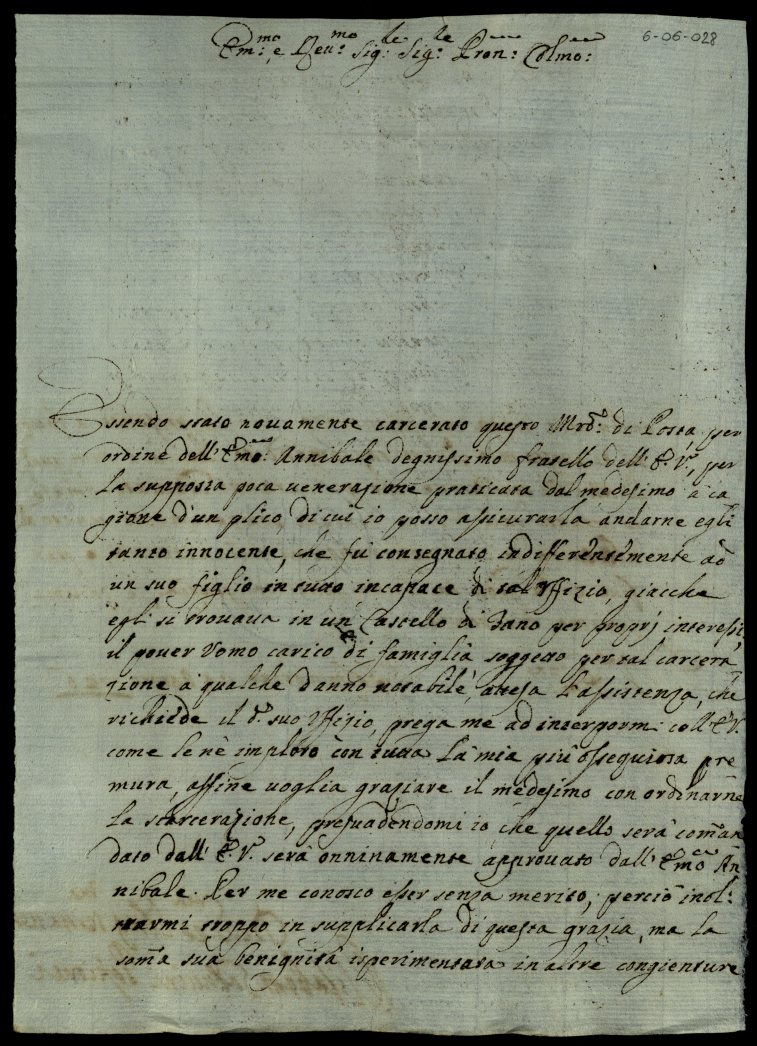 6-06-028
Em:mo, e Reu:mo Sig:le Sig:le Pron: Colmo:
Essendo stato novamente carcerato questo Mrõ: di Posta, per
ordine dell' Emo: Annibale degnissimo fratello dell' E. V., per
la supposta poca venerazione praticata dal medesimo à ca
gione d'un plico, di cui io posso assicurarla andarne egli
tanto innocente, che fù consegnato indifferentemente ad
un suo figlio in tutto incapace di tal Uffizio, giacche
egli si trovava in un Castello di Fano per proprj interessi,
il pover Uomo carico di famiglia soggetto per tal carcera
zione à qualche danno notabile, attesa l'assistenza, che
richiede il d.o suo Uffizio, prega me ad interpormi coll' E. V.
come le nè imploro con tutta la mia più ossequiosa pre
mura, affine voglia graziare il medesimo con ordinarne
la scarcerazione, presuadendomi io che quello serà coman
dato dall' E. V. serà onninamente approvato dall' Emo An
nibale. Per me conosco esser senza merito, perciò inol:
trarmi troppo in supplicarla di questa grazia, ma la
soma sua benignità isperimentata in altre congienture